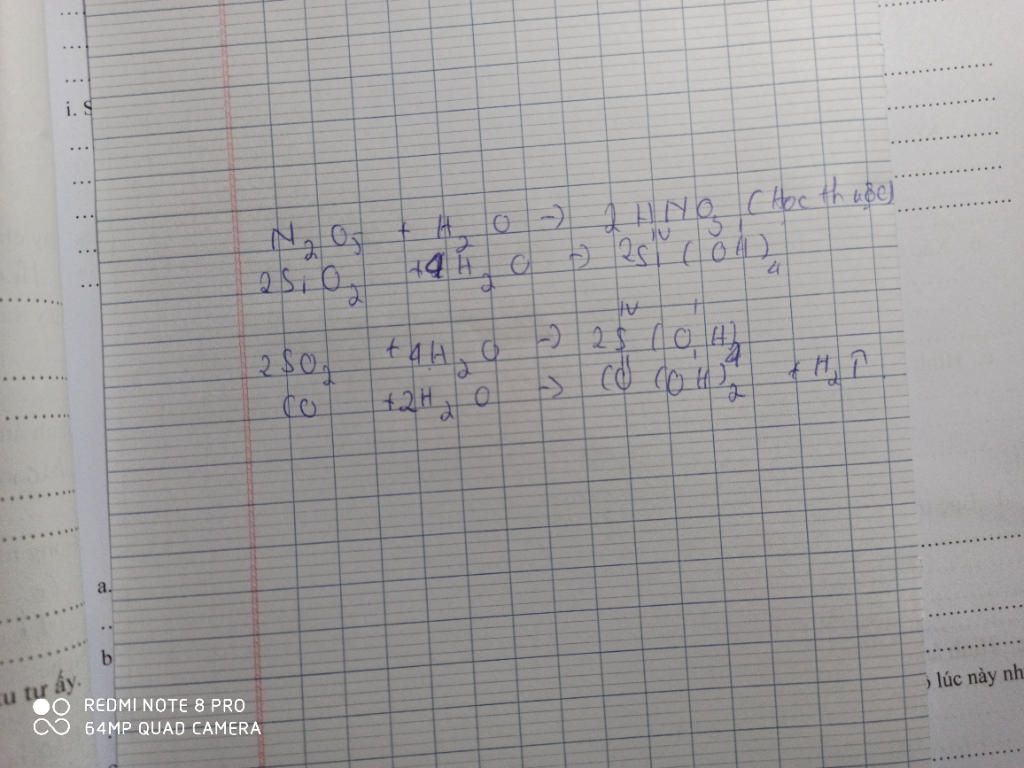 i. S
N₂O₅ + H₂O → 2HNO₃ (Học thuộc)
2SiO₂ + 4H₂O → 2Si(OH)₄
IV
IV I
2SO₂ + 4H₂O → 2S(OH)₄
CO + 2H₂O → CO(OH)₂ + H₂↑
a.
b
au tư ấy.
lúc này nh
REDMI NOTE 8 PRO
64MP QUAD CAMERA